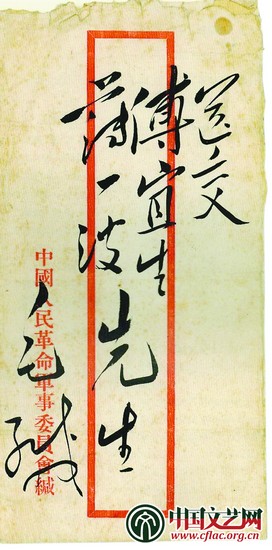 送交
傅宜生
薄一波先生
中國人民革命軍事委員會緘
毛緘
中国文艺网
www.cflac.org.cn